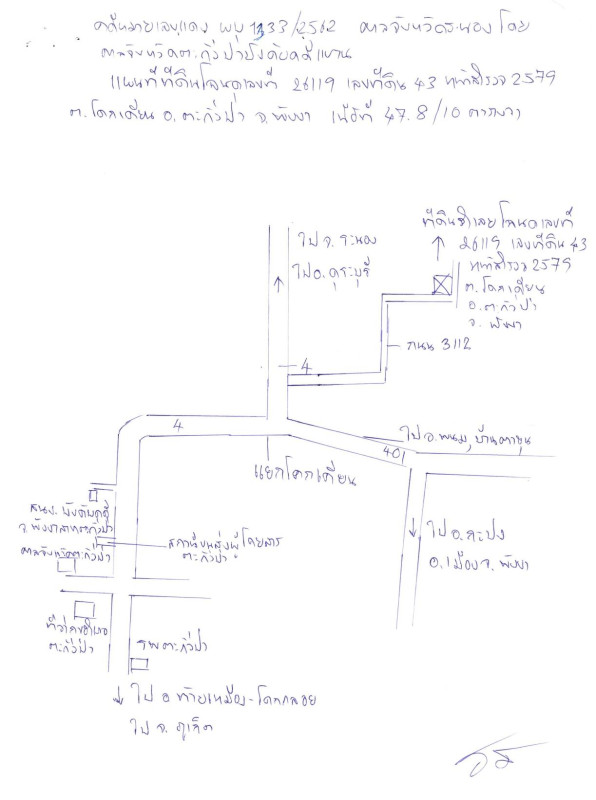 คดีหมายเลขแดง ผบ 1333/2562 ศาลจังหวัดระนอง โดย
ศาลจังหวัดตะกั่วป่าบังคับคดีแทน
แผนที่ที่ดินโฉนดเลขที่ 26119 เลขที่ดิน 43 หน้าสำรวจ 2579
ต.โคกเคียน อ.ตะกั่วป่า จ.พังงา เนื้อที่ 47.8/10 ตารางวา
ที่ดินจำเลยโฉนดเลขที่
26119 เลขที่ดิน 43
หน้าสำรวจ 2579
ต.โคกเคียน
อ.ตะกั่วป่า
จ.พังงา
ไป จ.ระนอง
ไป อ.คุระบุรี
ถนน 3112
4
4
ไป อ.พนม, บ้านตาขุน
401
แยกโคกเคียน
สนง.บังคับคดี
จ.พังงาสาขาตะกั่วป่า
สถานีขนส่งผู้โดยสาร
ตะกั่วป่า
ศาลจังหวัดตะกั่วป่า
ไป อ.กะปง
อ.เมือง จ.พังงา
ที่ว่าการอำเภอ
ตะกั่วป่า
รพ.ตะกั่วป่า
ไป อ.ท้ายเหมือง-โคกกลอย
ไป จ.ภูเก็ต